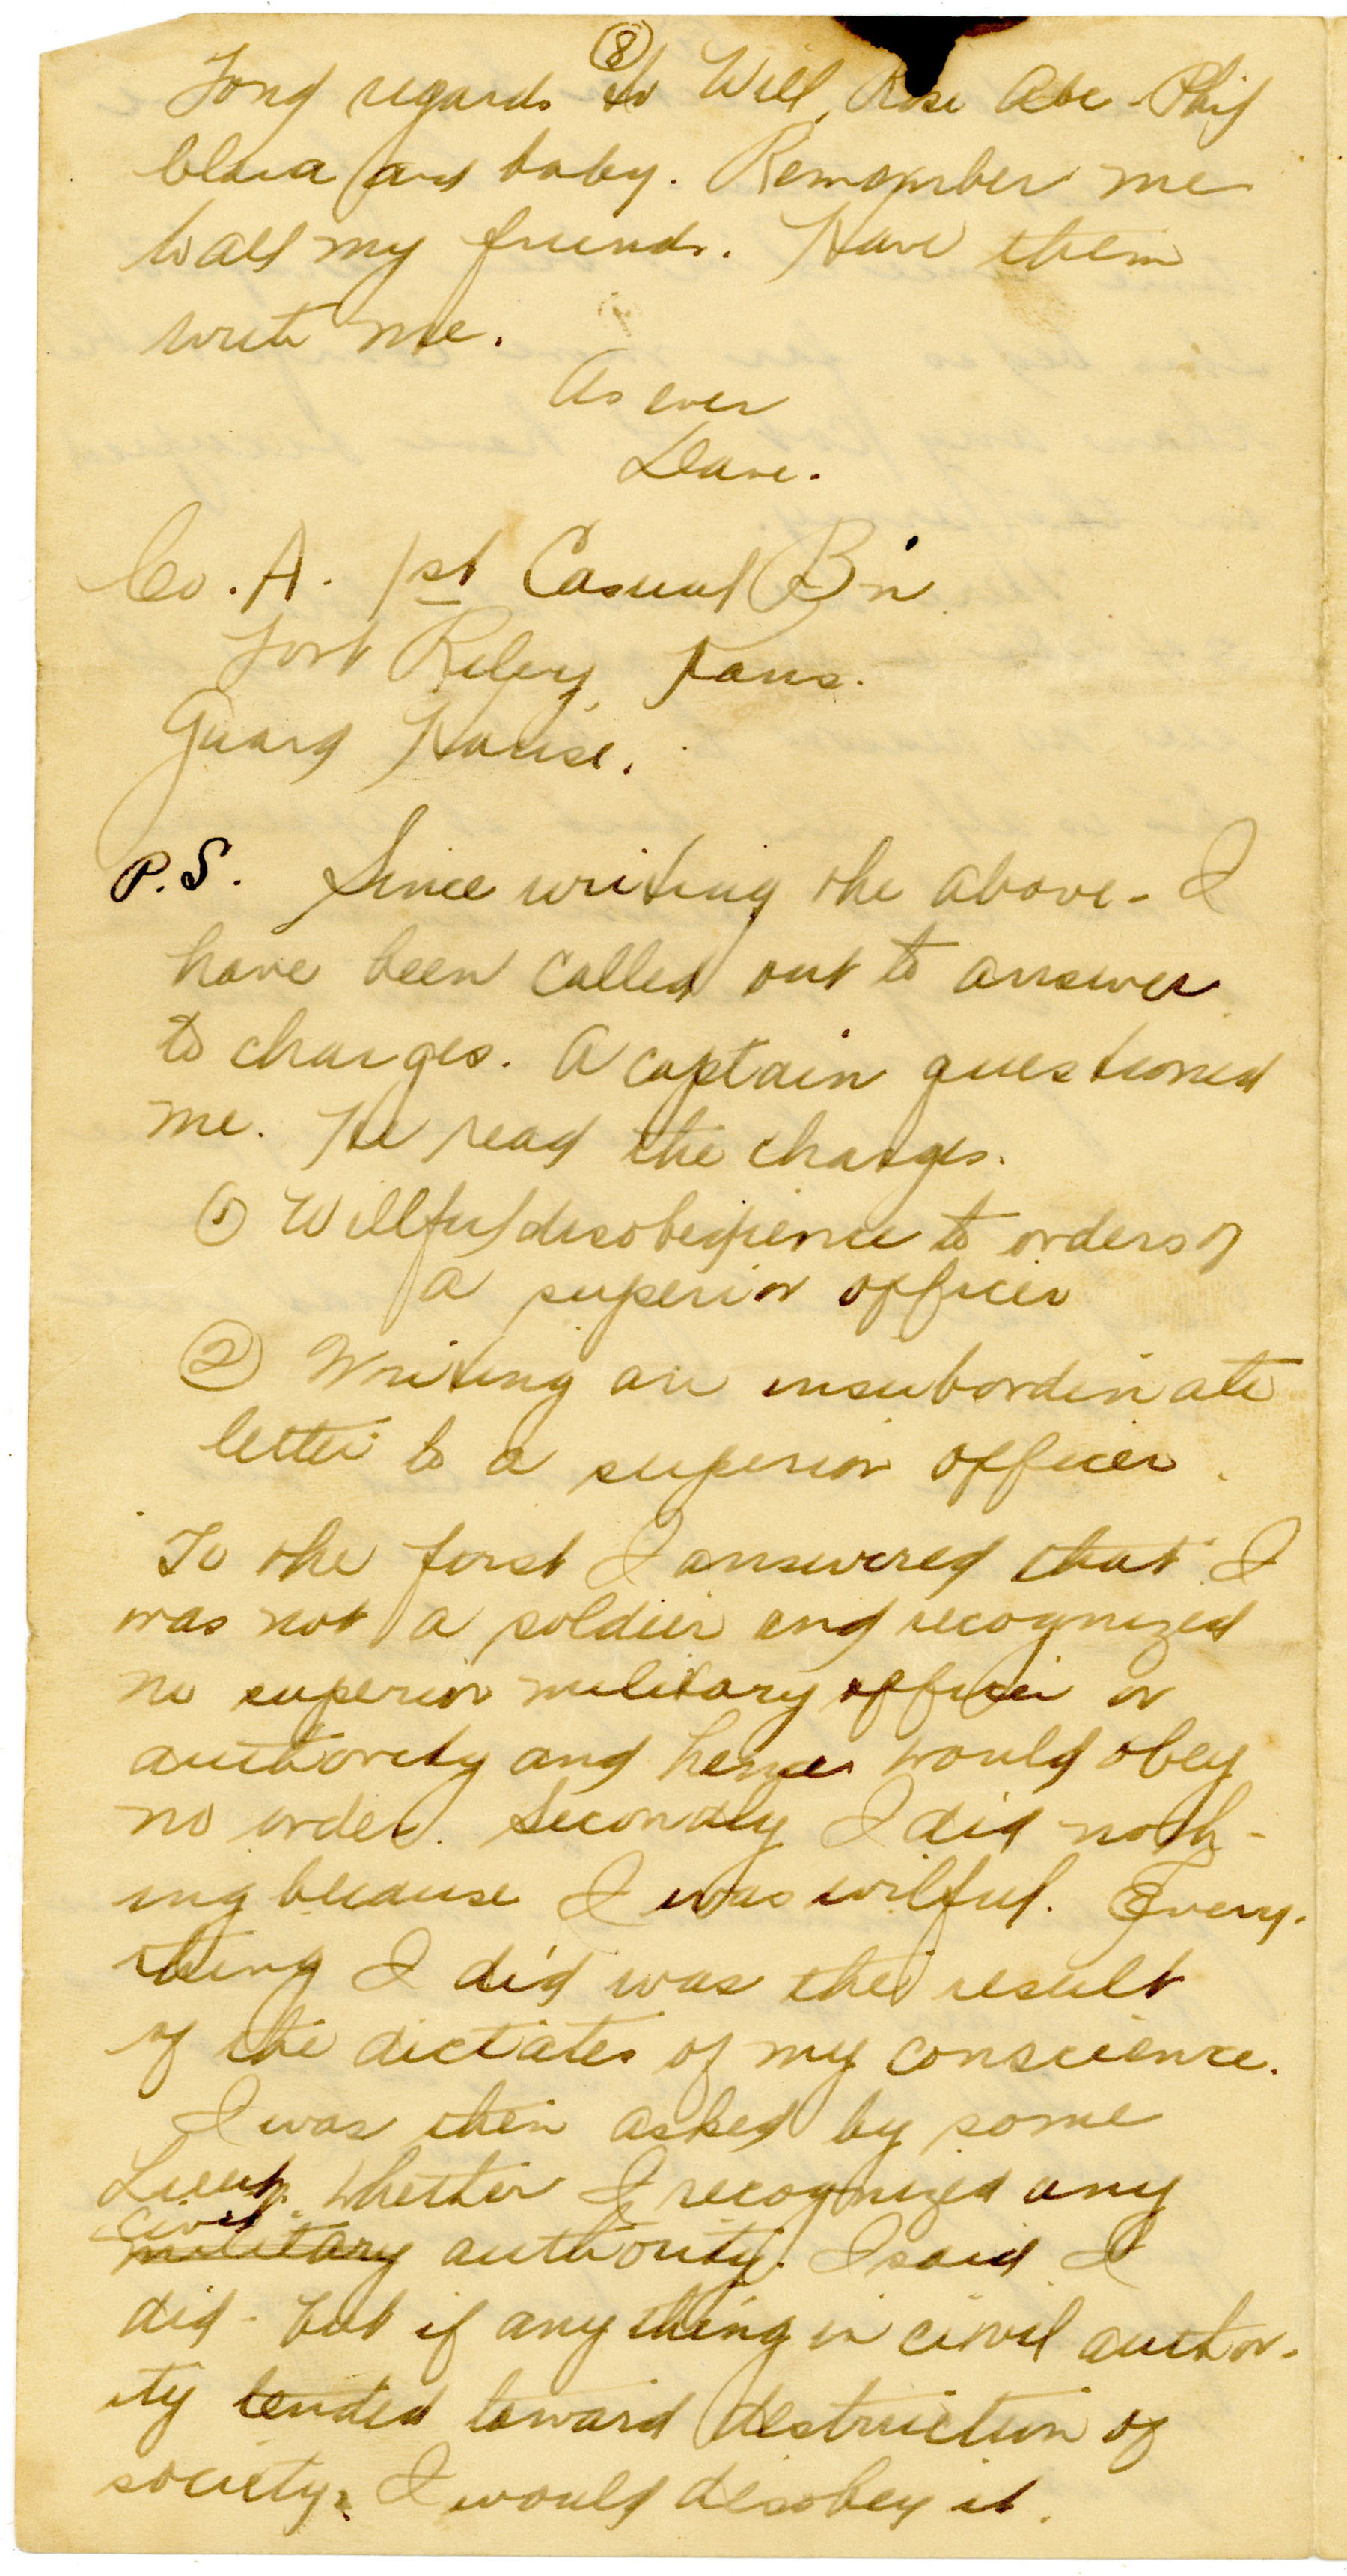 8
Fond regards to Will, Rose Abe Phil
Clara and baby. Remember me
to all my friends. Have them
write me.
As ever
Dave.
Co. A. 1st Casual Bn
Fort Riley, Kans.
Guard House.
P.S. Since writing the above - I
have been called out to answer
to charges. A captain questioned
me. He read the charges.
① Willful disobedience to orders of
a superior officer
② Writing an insubordinate
letter to a superior officer.
To the first I answered that I
was not a soldier and recognized
no superior military officer or
authority and hence would obey
no order. Secondly I did noth-
ing because I was wilful. Every-
thing I did was the result
of the dictates of my conscience.
I was then asked by some
Lieut. whether I recognized any
civil
military authority. I said I
did - but if anything in civil author-
ity tended toward destruction of
society, I would disobey it.